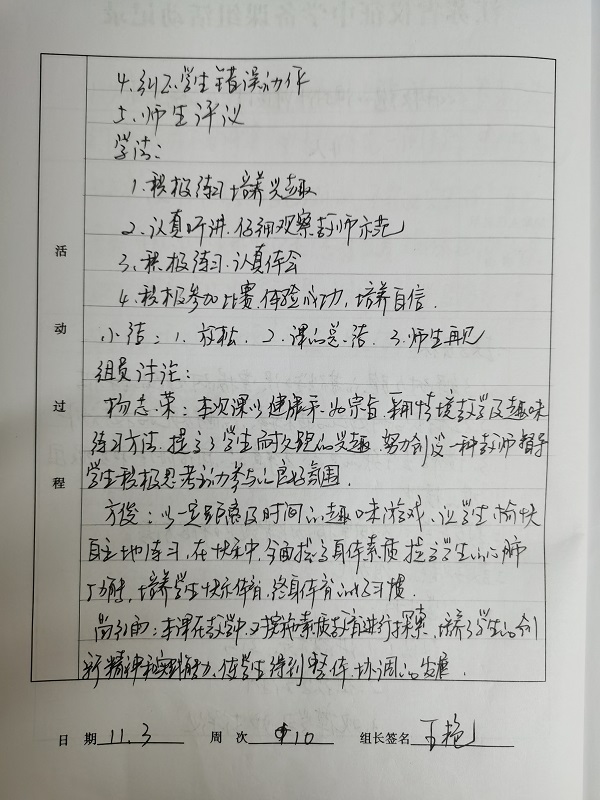 4.纠正学生错误动作
5.师生评议
学法：
1.积极练习培养兴趣
2.认真听讲.仔细观察教师示范
3.积极练习.认真体会
4.积极参加比赛.体验成功，培养自信.
小结：1.放松. 2.课的总结. 3.师生再见
组员评论：
杨志荣：本次课以健康第一为宗旨，采用情境教学及趣味
练习方法.提高了学生耐久跑的兴趣.努力创设一种教师指导
学生积极思考主动参与的良好氛围.
方俊：以一定距离及时间的趣味游戏、让学生愉快
自主地练习，在快乐中，全面提高身体素质 提高学生的心肺
功能，培养学生快乐体育，终身体育的好习惯.
本课在教学中.对实施素质教育进行探索，培养了学生的创
新精神和实践能力，使学生得到整体、协调的发展.
活
动
过
程
日 期 11.3 周 次 10 组长签名 王艳